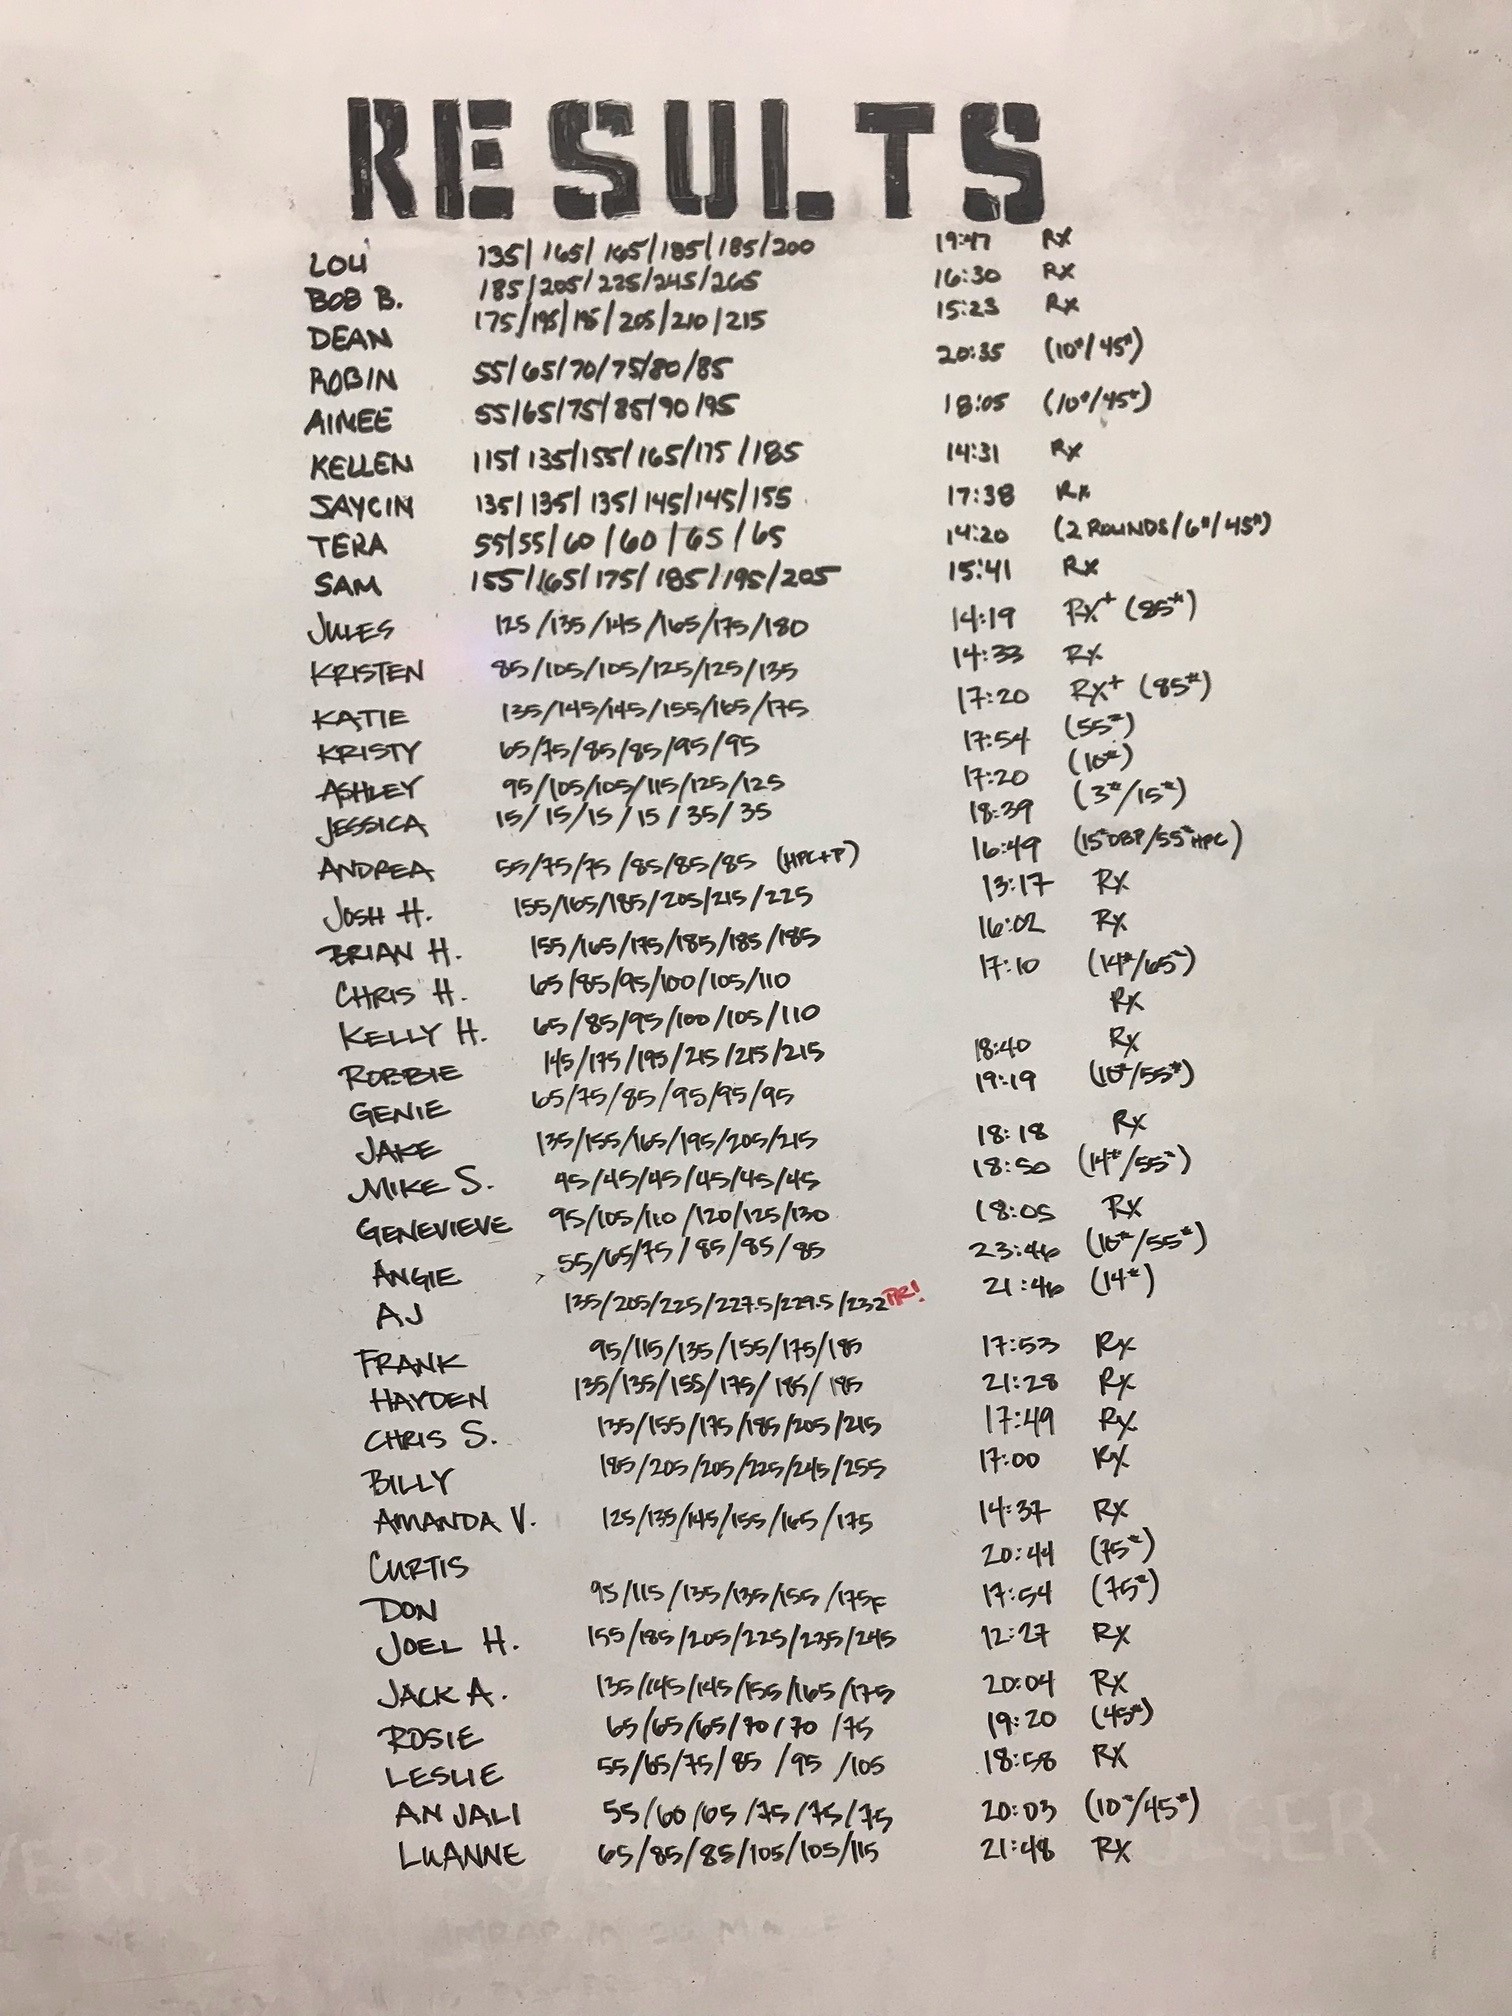 RESULTS
LOU 135/165/165/185/185/200 19:47 RX
BOB B. 185/205/225/245/265 16:30 RX
DEAN 175/195/195/205/210/215 15:23 RX
ROBIN 55/65/70/75/80/85 20:35 (10#/45#)
AIMEE 55/65/75/85/90/95 18:05 (10#/45#)
KELLEN 115/135/155/165/175/185 14:31 RX
SAYCIN 135/135/135/145/145/155 17:38 RX
TERA 55/55/60/60/65/65 14:20 (2 ROUNDS/6#/45#)
SAM 155/165/175/185/195/205 15:41 RX
JULES 125/135/145/165/175/180 14:19 RX+ (85#)
KRISTEN 85/105/105/125/125/135 14:33 RX
KATIE 135/145/145/155/165/175 17:20 RX+ (85#)
KRISTY 65/75/85/85/95/95 17:54 (55#)
ASHLEY 95/105/105/115/125/125 17:20 (10#)
JESSICA 15/15/15/15/35/35 18:39 (3#/15#)
ANDREA 55/75/75/85/85/85 (HPC+P) 16:49 (15#DBP/55#HPC)
JOSH H. 155/165/185/205/215/225 13:17 RX
BRIAN H. 155/165/175/185/185/185 16:02 RX
CHRIS H. 65/85/95/100/105/110 17:10 (14#/65#)
KELLY H. 65/85/95/100/105/110 RX
ROBBIE 145/175/195/215/215/215 18:40 RX
GENIE 65/75/85/95/95/95 19:19 (10#/55#)
JAKE 135/155/165/195/205/215 18:18 RX
MIKE S. 45/45/45/45/45/45 18:50 (14#/55#)
GENEVIEVE 95/105/110/120/125/130 18:05 RX
ANGIE 55/65/75/85/85/85 23:46 (10#/55#)
AJ 135/205/225/227.5/229.5/232 PR! 21:46 (14#)
FRANK 95/115/135/155/175/185 17:53 RX
HAYDEN 135/135/155/175/185/185 21:28 RX
CHRIS S. 135/155/175/185/205/215 17:49 RX
BILLY 185/205/205/225/245/255 17:00 RX
AMANDA V. 125/135/145/155/165/175 14:37 RX
CURTIS 20:44 (75#)
DON 95/115/135/135/155/175F 17:54 (75#)
JOEL H. 155/185/205/225/235/245 12:27 RX
JACK A. 135/145/145/155/165/175 20:04 RX
ROSIE 65/65/65/70/70/75 19:20 (45#)
LESLIE 55/65/75/85/95/105 18:58 RX
ANJALI 55/60/65/75/75/75 20:03 (10#/45#)
LUANNE 65/85/85/105/105/115 21:48 RX